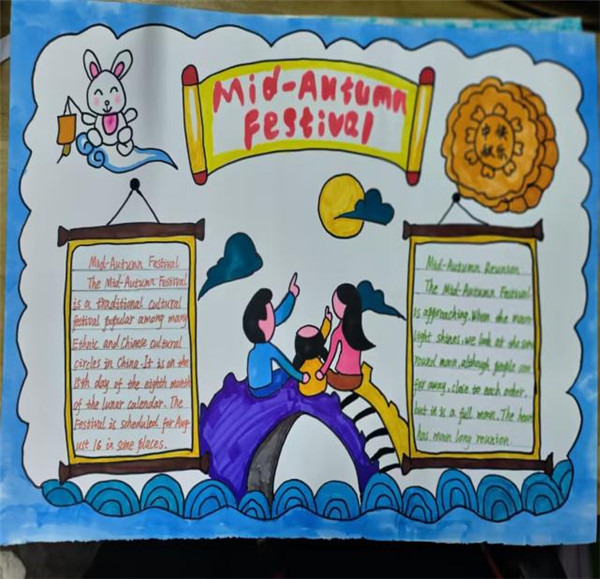 Mid-Autumn
Festival
中秋
快乐
Mid-Autumn Festival
The Mid-Autumn Festival
is a traditional cultural
festival popular among many
Ethnic and Chinese cultural
circles in China. It is on the
15th day of the eighth month
of the lunar calendar. The
Festival is scheduled for Aug
ust 16 in some places.
Mid-Autumn Reunion
The Mid Autumn Festival
is approaching. When the moon
light shines, we look at the same
round moon, although people are
far away, close to each other,
but it is a full moon. The heart
has moon long reunion